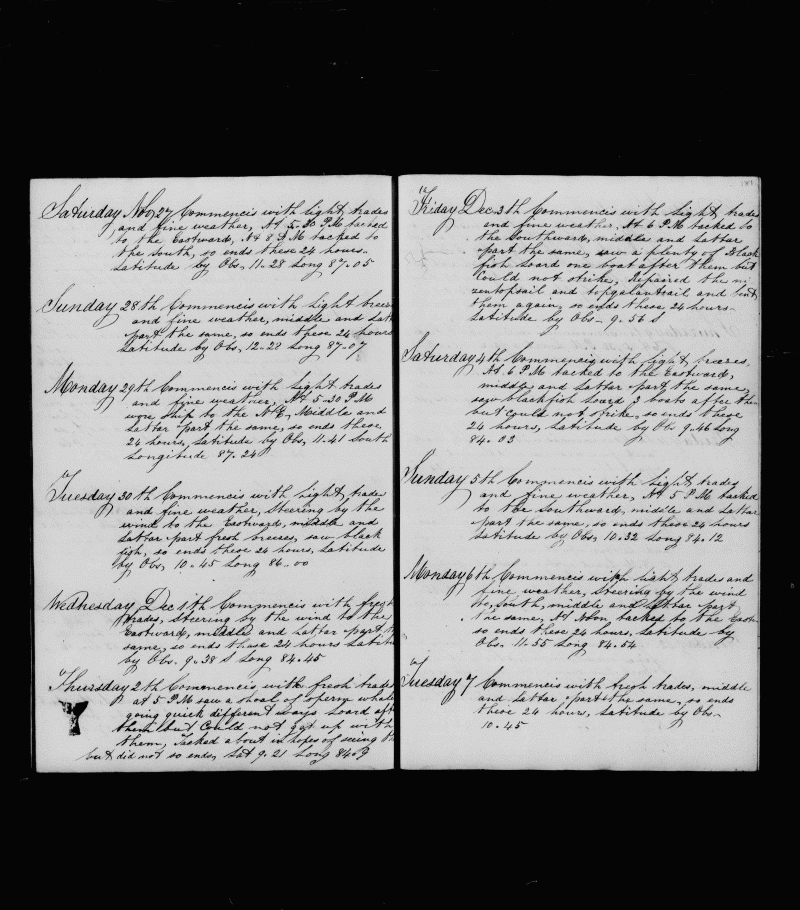 Saturday Nov, 27 Commencis with light trades
and fine weather, At 5-30 P M tacked
to the Eastward, At 8 P M tacked to
the South, so ends these 24 hours.
Latitude by Obs, 11-28 Long 87-05
Sunday 28th Commencis with light breeses
and fine weather, middle and latt
part the same, so ends these 24 hours
Latitude by Obs, 12-28 Long 87-07
Monday 29th Commencis with light trades
and fine weather, At 5-30 P M
wore ship to the N E, Middle and
lattar part the same, so ends these
24 hours, Latitude by Obs, 11-41 South
Longitude 87-24
Tuesday 30th Commencis with light trade
and fine weather, Steering by the
wind to the Eastward, middle and
Lattar part fresh breeses, saw black
fish, so ends these 24 hours, Latitude
by Obs, 10-45 Long 86-00
Wednesday Dec 1th Commencis with fresh
trades, steering by the wind to the
Eastward, middle and Lattar part, t
same, so ends these 24 hours Latitu
by Obs. 9-38 S Long 84-45
Thursday 2th Commencis with fresh trades
at 5 P M saw a shoal of sperm whale
going quick different ways Loard aft
them but Could not got up with
them, Tacked about in hopes of seeing th
but did not so ends, Lat 9-21 Long 84-9
181
Friday Dec 3th Commencis with light, trades
and fine weather, At 6 P M tacked to
the Southward, middle and Lattar
part the same, saw a plenty of Black
fish Loard one boat after them but
Could not strike, Repaired the mi
zentopsail and topgalantsail and bent
them again, so ends these 24 hours-
Latitude by Obs- 9-56 S
Saturday 4th Commencis with light breeses,
At 6 P M tacked to the Eastward,
middle and Lattar part the same,
saw blackfish Loard 3 boats after the-
but Could not strike, so ends these
24 hours, Latitude by Obs 9-46 Long
84-03
Sunday 5th Commencis with light trades
and fine weather, At 5 P M tacked
to the Southward, middle and Lattar
part the same, so ends these 24 hours
Latitude by Obs, 10-32 Long 84-12
Monday 6th Commencis with light trades and
fine weather, Steering by the wind
to, South, middle and Lattar part
the same, At Noon, tacked to the East-
so ends these 24 hours, Latitude by
Obs. 11-55 Long 84-54
Tuesday 7 Commencis with fresh trades, middle
and Lattar part the same, so ends
these 24 hours, Latitude by Obs-
10-45